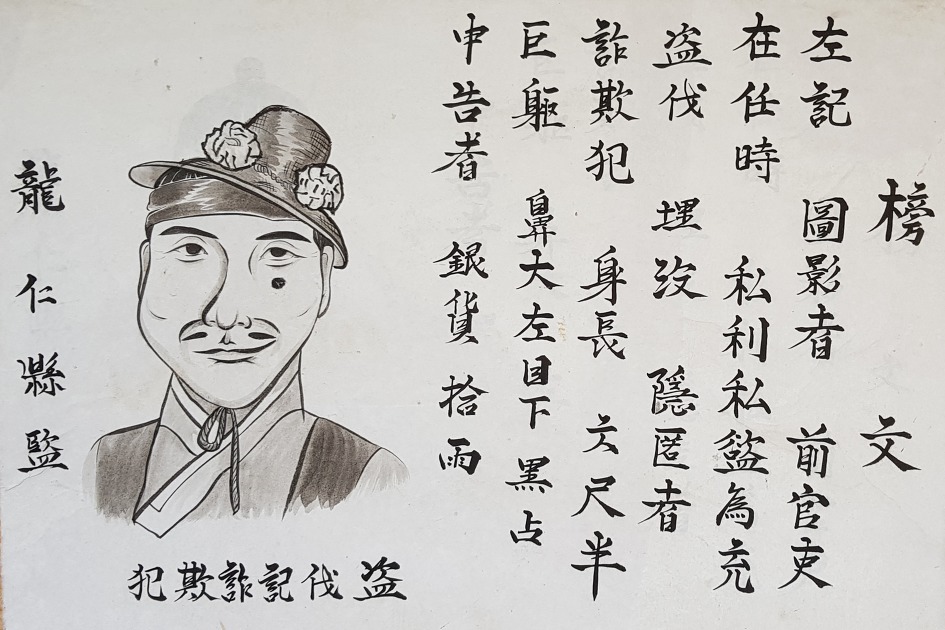 榜文
左記 圖影者 前官吏
在任時 私利私慾為充
盗伐 埋没 隱匿者
詐欺犯 身長 六尺半
巨軀 鼻大左目下 黑占
申告者 銀貨 拾雨
盗伐記詐欺犯
龍仁縣監